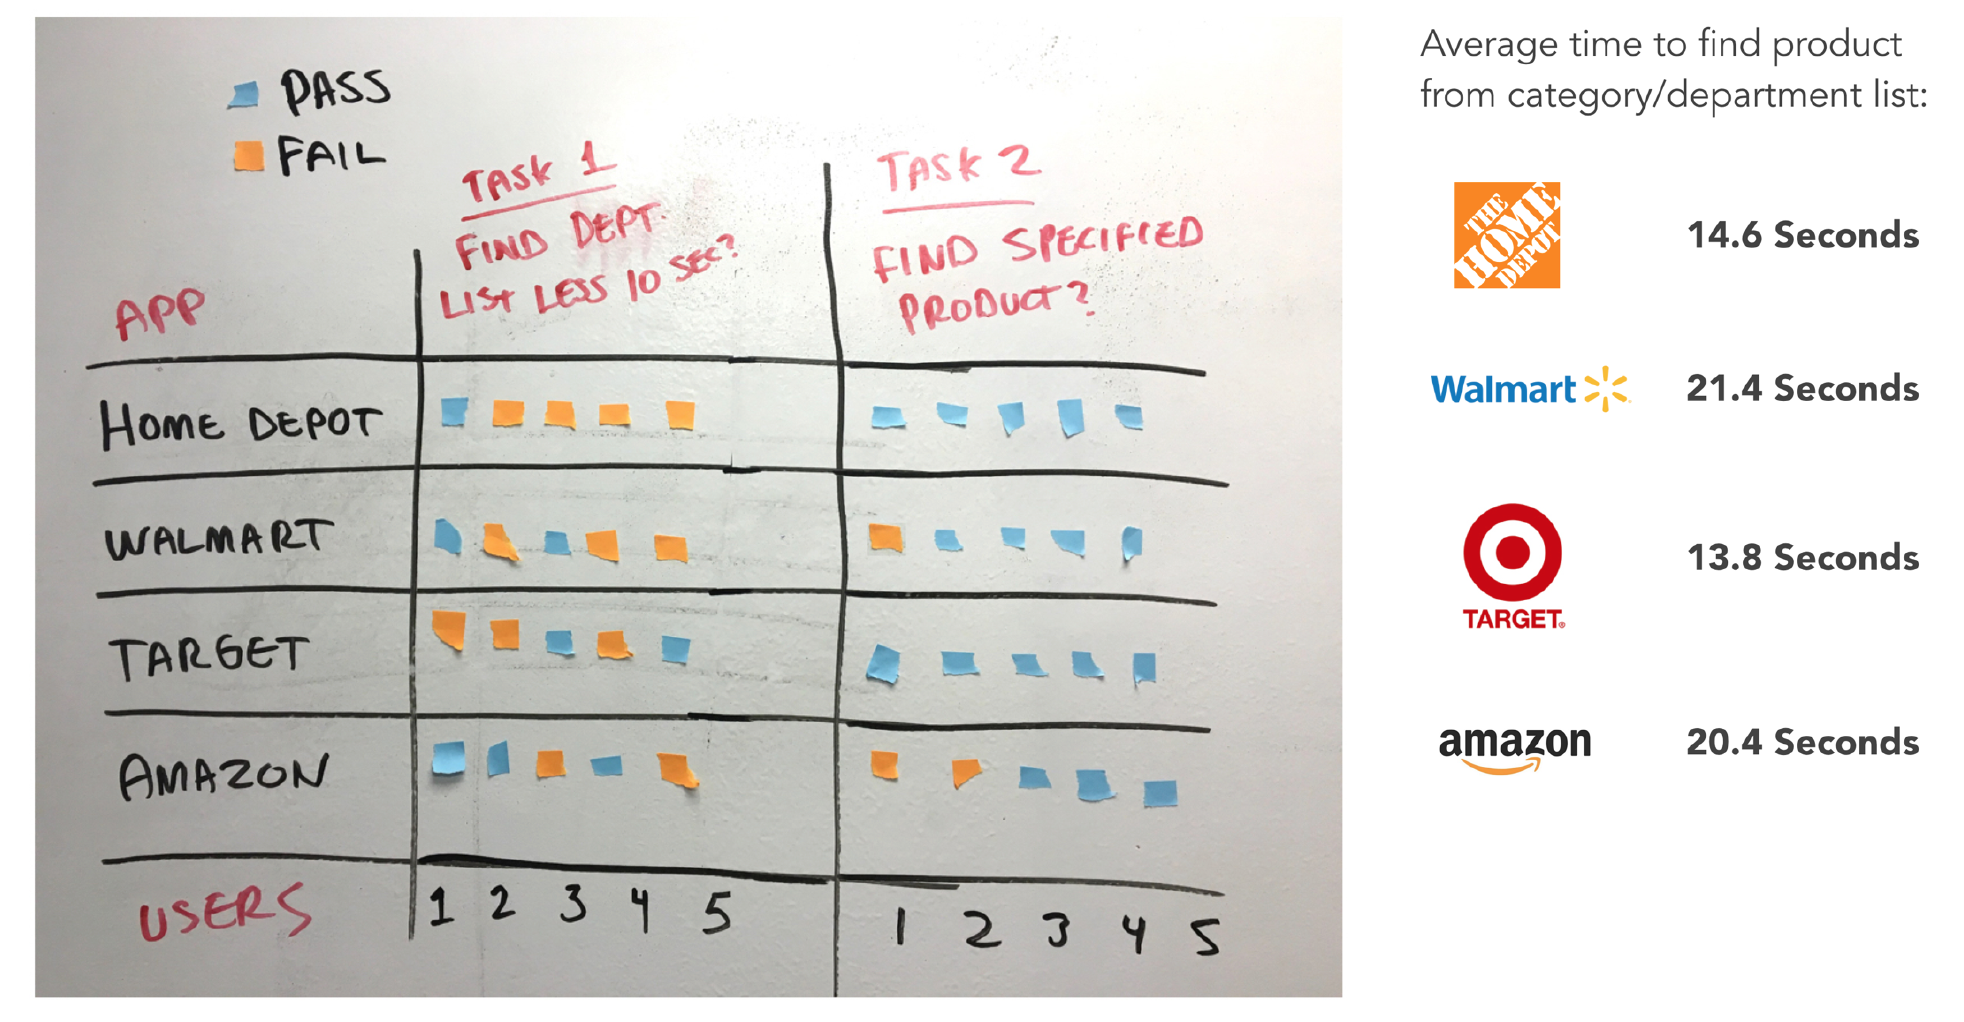 PASS
FAIL
TASK 1
FIND DEPT.
LIST LESS 10 SEC?
TASK 2
FIND SPECIFIED
PRODUCT?
APP
HOME DEPOT
WALMART
TARGET
AMAZON
USERS
1 2 3 4 5
1 2 3 4 5
Average time to find product
from category/department list:
THE
HOME
DEPOT
14.6 Seconds
Walmart
21.4 Seconds
TARGET
13.8 Seconds
amazon
20.4 Seconds